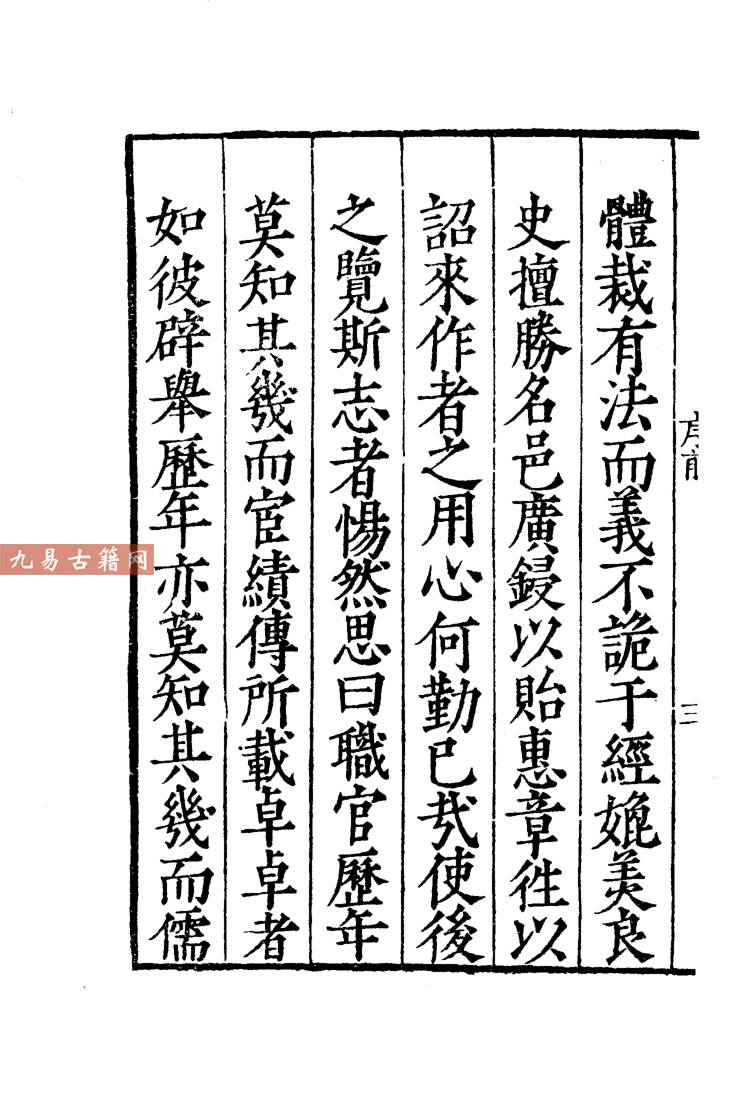 體裁有法而義不詭于經媲美良
史擅勝名邑廣鋟以貽惠章徃以
詔來作者之用心何勤已㢤使後
之覽斯志者惕然思曰職官歷年
莫知其幾而宦績傳所載卓卓者
如彼辟舉歷年亦莫知其幾而儒
三
九易古籍网